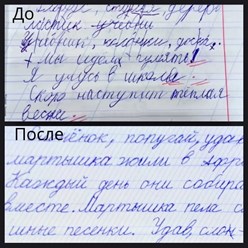 До
ластик учебни
учебник, пенёчки, доска.
+ Мы идём гулять!
Я учусь в школе.
Скоро наступит тёплая
весна.
После
нок, попугай, удав
мартышка жили в Афр
Каждый день они собира
вместе. Мартышка пела с
шные песенки. Удав, слон-